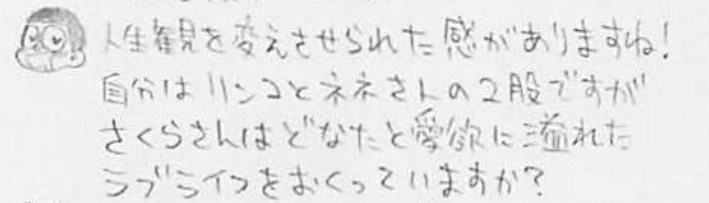 人生観を変えさせられた感がありますね!
自分はリンコとネネさんの2股ですが
さくらさんはどなたと愛欲に溢れた
ラブライフをおくっていますか?